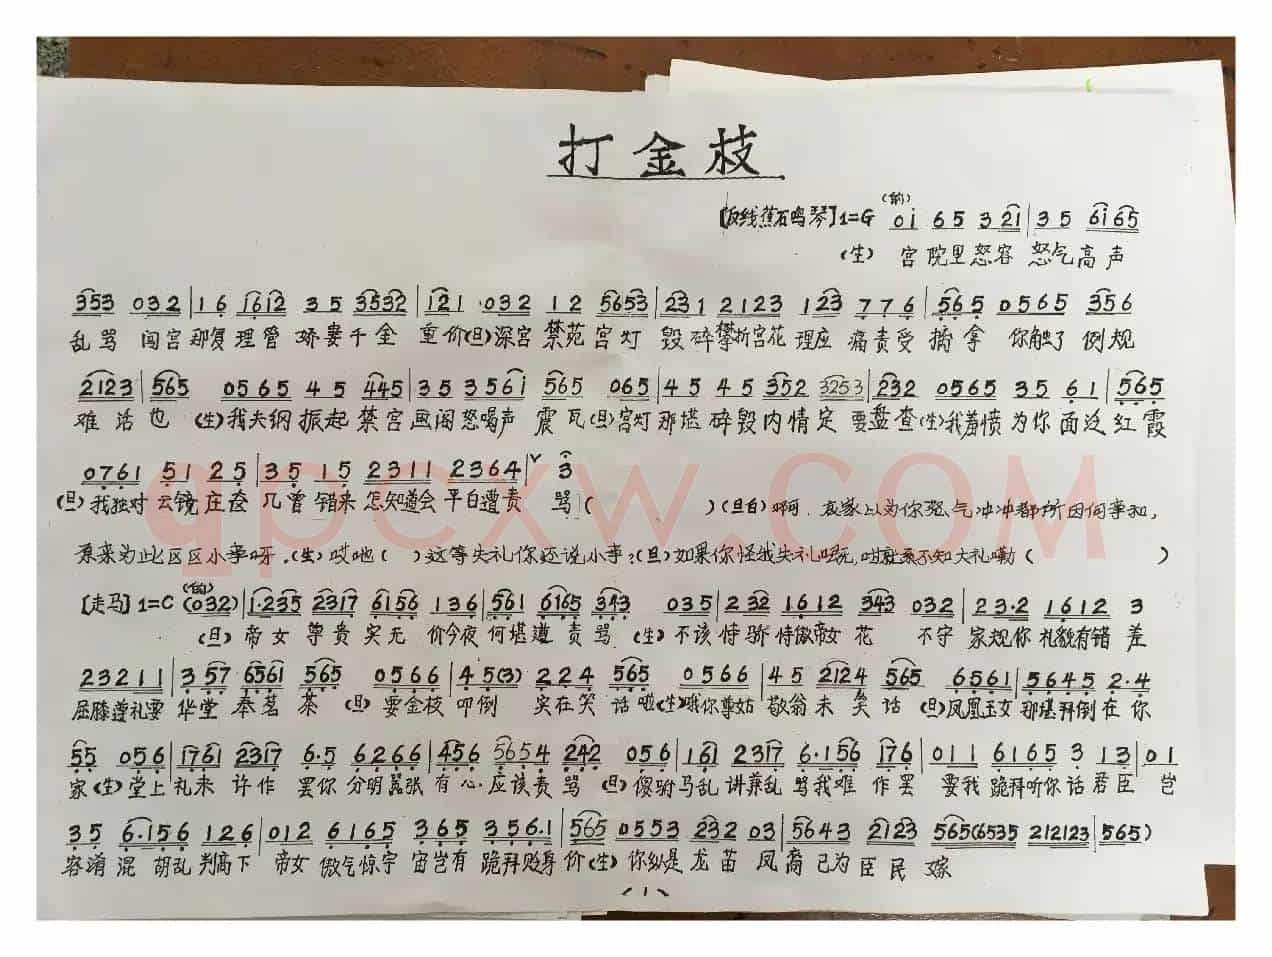 打金枝
[反线蕉石鸣琴] 1=G (的) 0i 65 3 2i | 35 6i65
(生) 宫院里怒容 怒气高声
353 032 | 16 1612 35 3532 | 121 032 12 5653 | 231 2123 123 776 | 565 0565 356
乱骂 闯宫那复理管 娇妻千金 重价(旦)深宫禁苑宫灯 毁碎攀折宫花 理应 痛责受 擒拿 你触了 例规
2123 | 565 0565 45 445 | 35 356i 565 065 | 45 45 352 3253 | 232 0565 35 61 | 565
难活也 (生)我夫纲振起禁宫画阁怒喝声震瓦(旦)宫灯那堪碎毁内情定要盘查(生)我羞愤为你面泛红霞
0761 51 25 | 35 15 2311 2364 | 3
(旦)我独对云镜庄奁几曾错来怎知道会平白遭责骂( )(旦白)啊 哀家以为你怒气冲冲都所因何事和,
原来为此区区小事呀.(生)哎吔( )这等失礼你还说小事:(旦)如果你怪我失礼呢 不知大礼嘞( )
[走马] 1=C (的) (032) | 1·235 2317 6156 136 | 561 6165 343 035 | 232 1612 343 032 | 23·2 1612 3
(旦)帝女尊贵实无价今夜何堪遭责骂(生)不该恃骄恃傲帝女花 不守家规你礼貌有错差
23211 | 357 6561 565 0566 | 45(3) 224 565 0566 | 45 2124 565 6561 | 5645 2·4
屈膝遵礼要华堂奉茗茶(旦)要金枝叩倒 实在笑话啦(生)哦你尊姑敬翁未笑话(旦)凤凰玉女那堪拜倒在你
55 056 | 1761 2317 6·5 6266 | 456 5654 242 056 | 161 2317 6·156 176 | 011 6165 3 13 | 01
家(生)堂上礼来许作罢你分明嚣张有心应该责骂(旦)傻驸马乱讲兼乱骂我难作罢 要我跪拜听你话君臣岂
35 6·156 126 | 012 6165 365 356·1 | 565 0553 232 03 | 5643 2123 565(6535 212123 | 565)
容淆混胡乱判高下 帝女傲气惊宇宙岂有跪拜贬身价(生)你纵是龙苗凤裔已为臣民嫁
(1)
qpcxw.COM